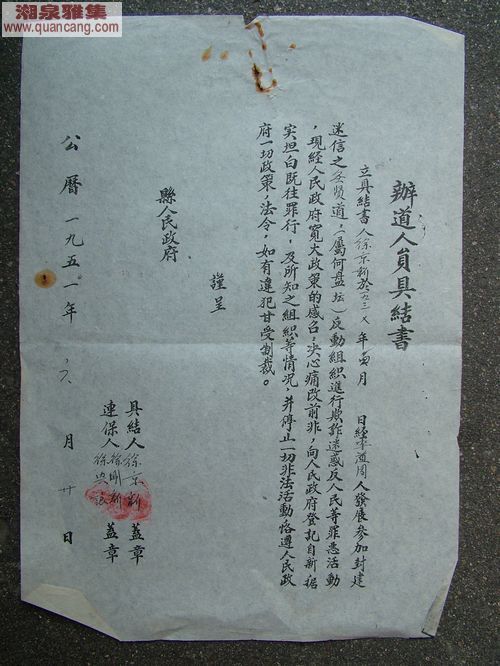 湘泉雅集
www.quancang.com
辦道人員具結書
立具結書人徐京新於 年 月 日經李 周人發展參加封建
迷信之 賢道，(屬何盘坛)反動組织進行欺詐迷惑反人民等罪惡活動
，現經人民政府寬大政策的感召，決心痛改前非，向人民政府登記自新据
实坦白既往罪行，及所知之組織等情况，并停止一切非法活動恪遵人民政
府一切政策，法令，如有違犯甘受制裁。
謹呈
縣人民政府
具結人徐京新 蓋章
連保人徐 新 蓋章
徐
公曆一九五一年 六 月 廿 日